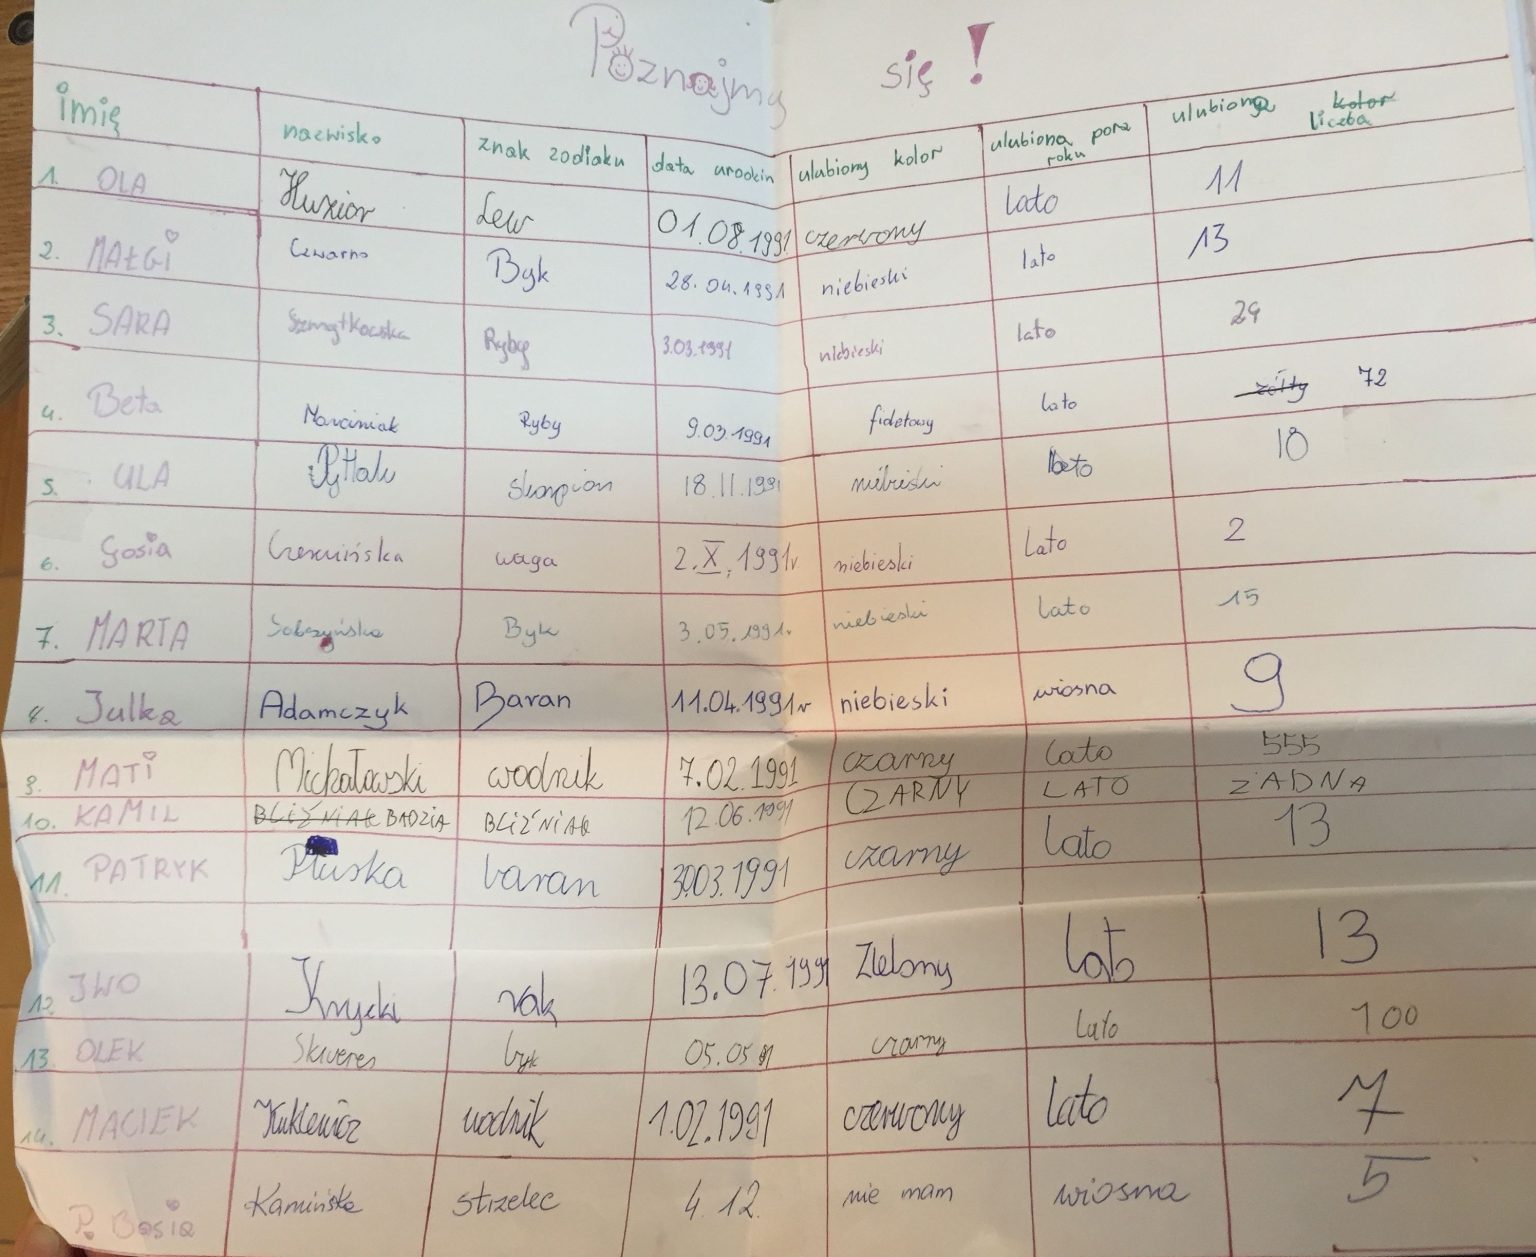 Poznajmy się!
imię nazwisko znak zodiaku data urodzin ulubiony kolor ulubiona pora roku ulubiona kolor liczba
1. OLA Lew 01.08.1991 czerwony lato 11
2. MAŁGI Czwarno Byk 28.04.1991 niebieski lato 13
3. SARA Ryby 3.03.1991 niebieski lato 29
4. Beta Marciniak Ryby 9.03.1991 fioletowy lato żółty 72
5. ULA skorpion 18.11.1991 niebieski lato 18
6. Gosia Czerwińska waga 2.X.1991r niebieski lato 2
7. MARTA Sobczyńska Byk 3.05.1991r. niebieski lato 15
8. Julka Adamczyk Baran 11.04.1991r niebieski wiosna 9
9. MATI Michałowski wodnik 7.02.1991 czarny lato 555
10. KAMIL BLIŹNIAK BADZIA BLIŹNIAK 12.06.1991 CZARNY LATO ŻADNA
11. PATRYK Pluska baran 30.03.1991 czarny lato 13
12. IWO Krycki rak 13.07.1991 Zielony lato 13
13. OLEK Skweres byk 05.05.91 czarny lato 100
14. MACIEK Kuklewicz wodnik 1.02.1991 czerwony lato 7
P. Basia Kamińska strzelec 4.12. nie mam wiosna 5